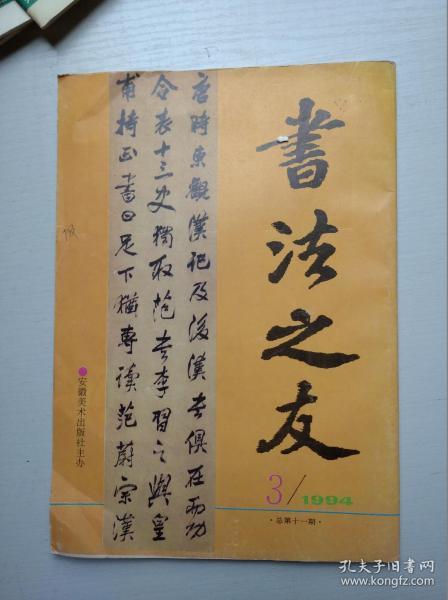 書法之友
3/1994
·总第十一期·
唐時東觀漢記及後漢書俱在而功
令表十三史獨取范書李習之與皇
甫持正書曰足下猶專讀范蔚宗漢
●安徽美术出版社主办
孔夫子旧书网
www.kongfz.com